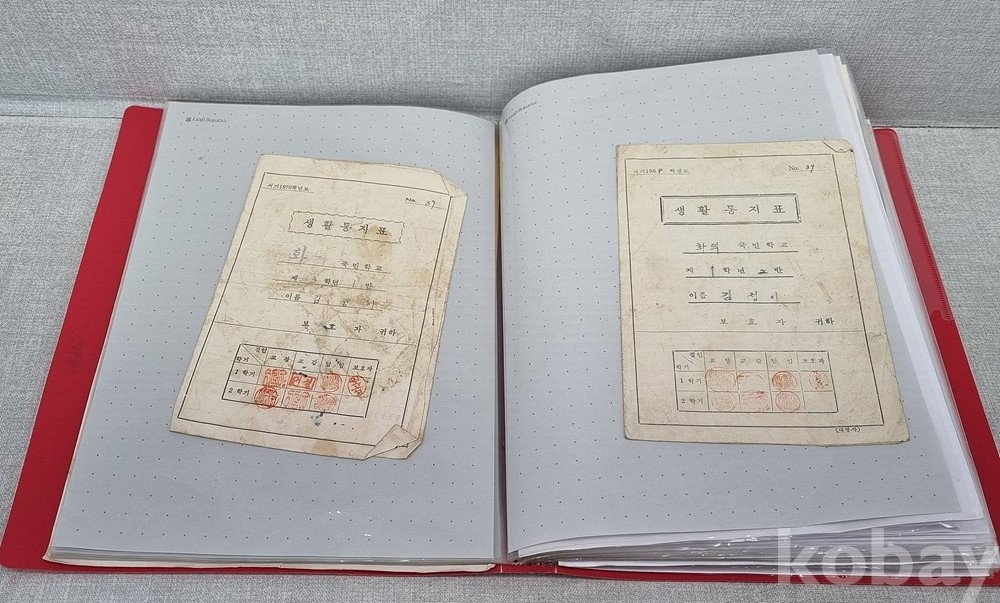 서기1970학년도
No. 37
생활통지표
화 국민학교
제 학년 1 반
이름 김 이
보호자 귀하
결인
학기
교장 교감 담임 보호자
1 학기
2 학기
서기196 학년도
No. 37
생활통지표
화의 국민학교
제 1 학년 2 반
이름 김정이
보호자 귀하
결인
학기
교장 교감 담임 보호자
1 학기
2 학기
kobay